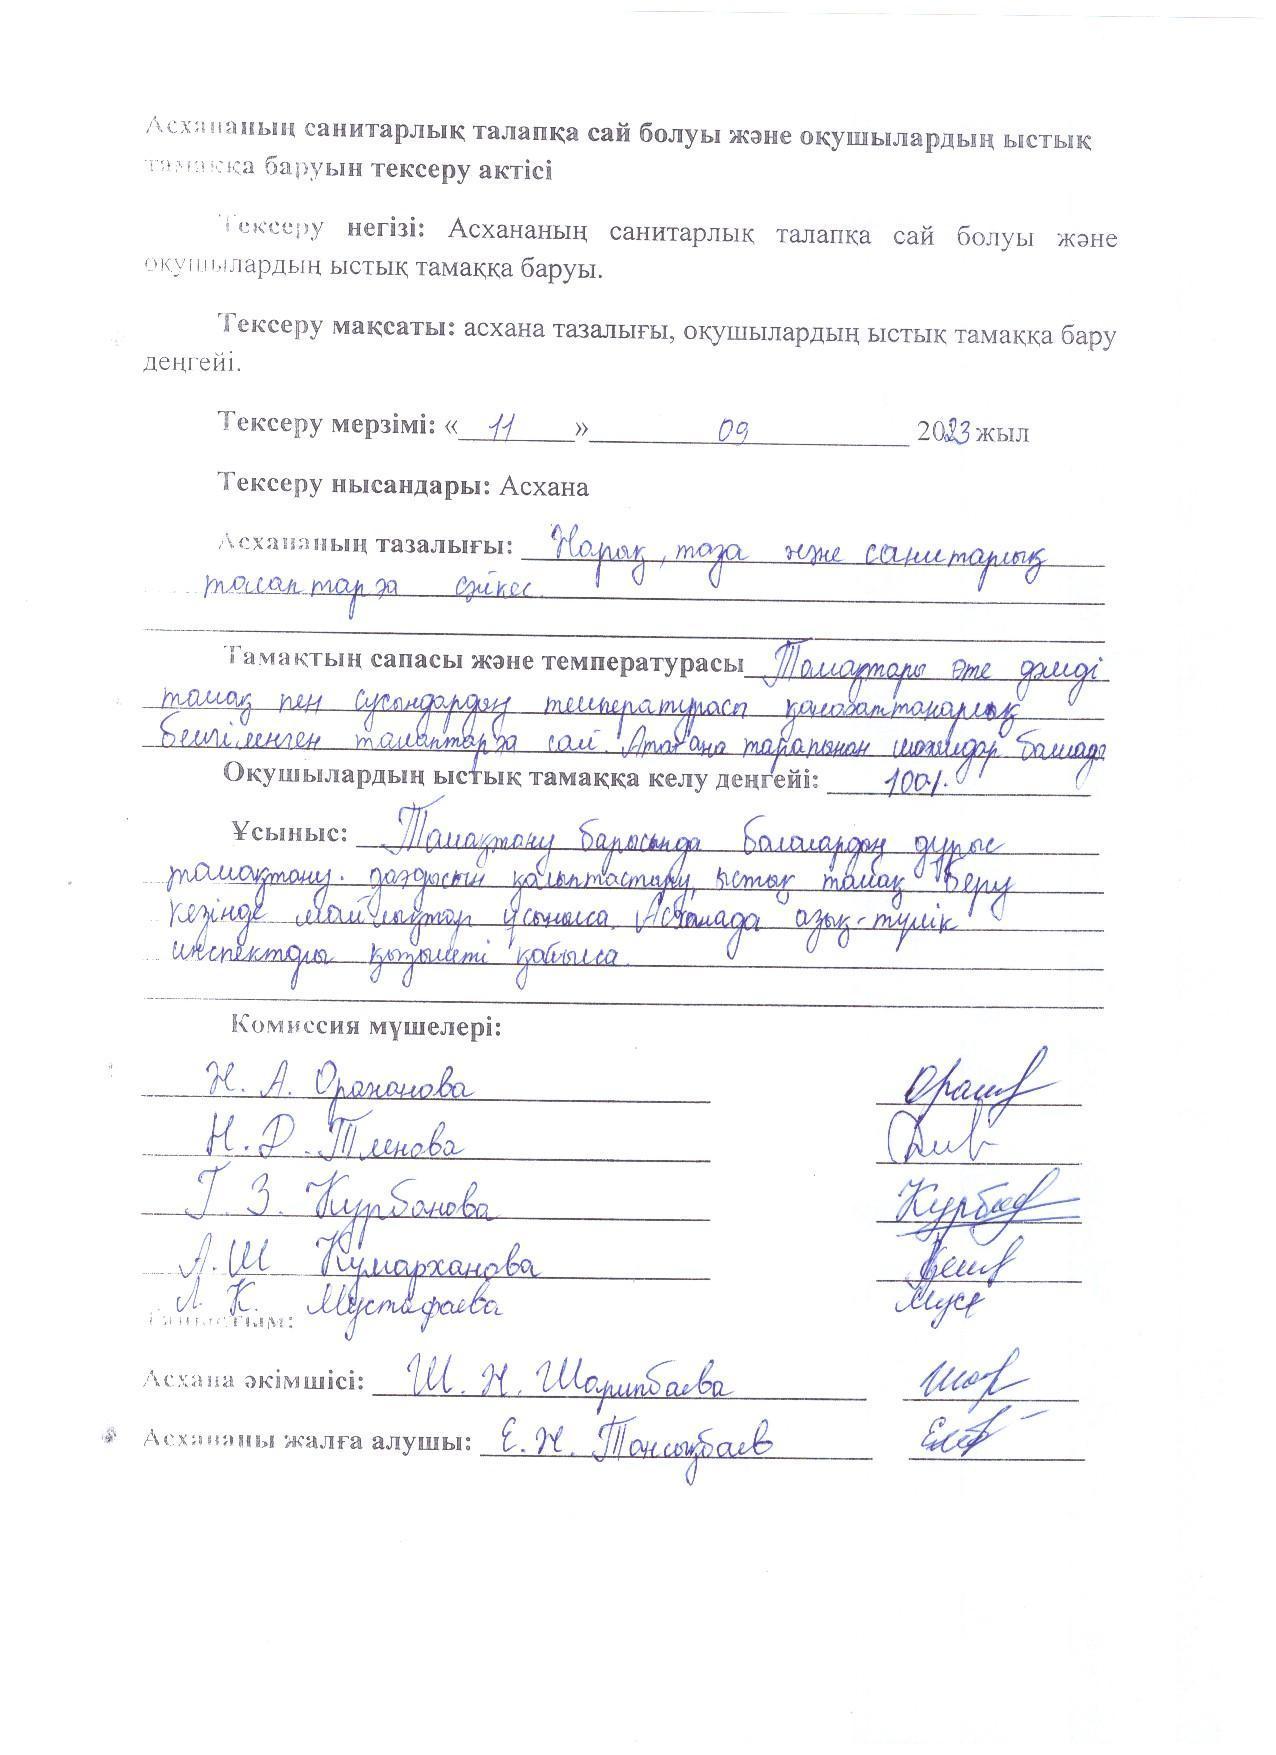 Асхананың санитарлық талапқа сай болуы және оқушылардың ыстық
тамаққа баруын тексеру актісі
Тексеру негізі: Асхананың санитарлық талапқа сай болуы және
оқушылардың ыстық тамаққа баруы.
Тексеру мақсаты: асхана тазалығы, оқушылардың ыстық тамаққа бару
деңгейі.
Тексеру мерзімі: « 11 » 09 2023 жыл
Тексеру нысандары: Асхана
Асхананың тазалығы: Жарық, таза және санитарлық
талаптарға сәйкес.
Тамақтың сапасы және температурасы Тамақтары өте дәмді
тамақ пен сусындардың температурасы қанағаттанарлық
белгіленген талаптарға сай. Ата-ана тарапынан шағымдар болмады
Оқушылардың ыстық тамаққа келу деңгейі: 100%.
Ұсыныс: Тамақтану барысында балалардың дұрыс
тамақтану дағдысын қалыптастыру, ыстық тамақ беру
кезінде майлықтар ұсынылса. Асханада азық-түлік
инспекторы қызметі
Комиссия мүшелері:
Н. А. Оразанова
Н. Д. Тленова
Г. З. Курбанова
А. Ш Кумарханова
Л. К. Мустафаева
Таныстым:
Асхана әкімшісі: Ш. Н. Шарипбаева
Асхананы жалға алушы: Е. Н. Тансықбаев